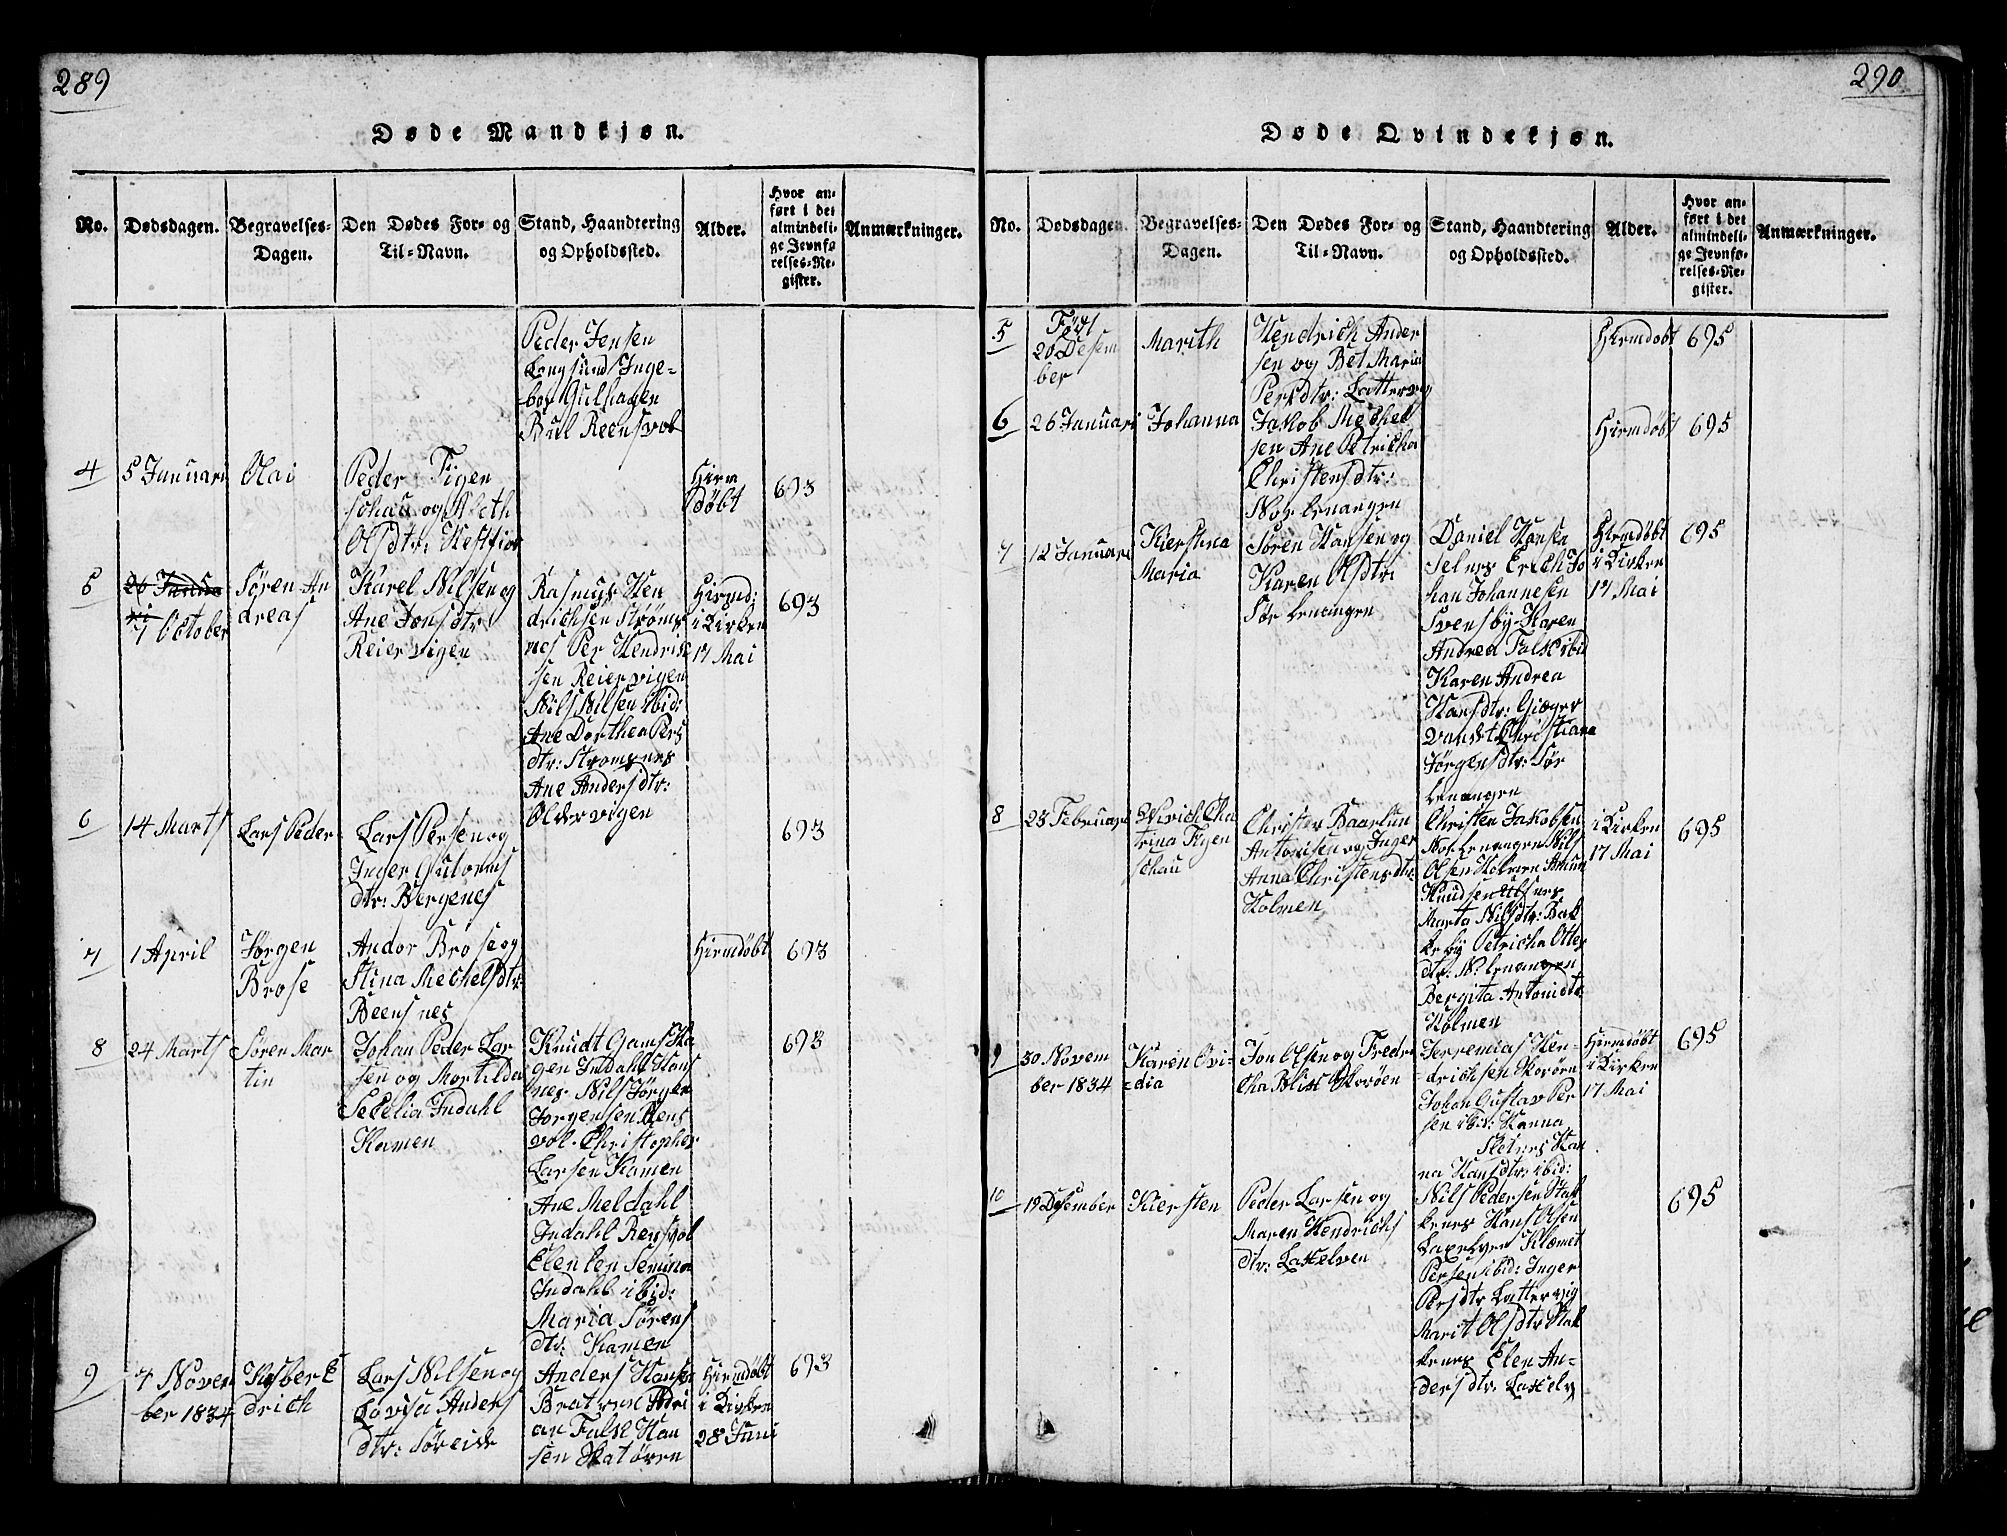 289
Døde Mandkjøn.
No.
Dødsdagen.
Begravelses-
Dagen.
Den Dødes For- og
Til-Navn.
Stand, Haandtering
og Opholdssted.
Alder.
Hvor an-
ført i det
almindeli-
ge Jevnfø
relses-Re-
gister.
Anmærkninger.
Peder Jensen
Langsund Inge-
bor Gulhagen
Bul Reensvol
4
5 Januari
Olai
Peder Figen
schau og Aleth
Olsdtr:
Hirm
døbt
693
5
26 Janua
ri
7 October
Søren An
dreas
Karel Nilsen og
Ane Jonsdtr
Reiervigen
Rasmus Hen
drichsen Strøms
nes Per Hendrik
sen Reiervigen
Nils Nilsen ibid:
Ane Dorthea Pers
dtr: Stromsnes
Ane Andersdtr:
Oldervigen
Hirmd:
i Kirken
17 Mai
693
6
14 Marts
Lars Peder
Lars Persen og
Inger Gutorms
dtr: Bergenes
693
7
1 April
Jørgen
Brose
Andor Brose og
Stina Mechelsdtr:
Reensnes
Hirmdøbt
693
8
24 Marts
Søren Mar
tin
Johan Peder Lar
sen og Mortilda
Secelia Indahl
Hamen
Knudt Gams Ha
gen Indahl Hans
nes Nils Jørger
Jorgensen Rens
vol. Christopher
Larsen Hamen
Ane Meldahl
Indahl Rensvol
Elen
Indahl ibid:
Maria Sørens
dtr: Hamen
693
9
7 Novem
ber 1834
drich
Lars Nilsen og
Lovisa Anders
dtr: Søreide
Anders Hanse
Bratren Adri
an Falk Han
sen Skatøren
Hirmdøbt
i Kirken
28 Juni
693
290
Døde Qvindekjøn.
No.
Dødsdagen.
Begravelses-
Dagen.
Den Dødes For- og
Til-Navn.
Stand, Haandtering
og Opholdssted.
Alder.
Hvor an-
ført i det
almindeli-
ge Jevnfø-
relses-Re-
gister.
Anmærkninger.
5
Föd
20 Desem
ber
Marith
Hendrich Ander
sen og Bet Maria
Persdtr: Lattervig
Hirmdøbt
695
6
26 Januari
Johanna
Jakob Mechel
sen Ane Petricha
Christensdtr:
Nor Lenangen
Hirmdøbt
695
7
12 Januari
Kierstina
Maria
Søren Hansen og
Karen Olsdtr
Sør Lenangen
Daniel Hansen
Selnes Erich Jo
han Johannesen
Svensby Karen
Andrea Falk ibid
Karen Andrea
Hansdtr: Giæver
vandt Christiana
Jörgensdtr: Sør
Lenangen
Hirmdøbt
i Kirken
17 Mai
695
8
23 Februari
Ulrich Cha
trina Figen
schau
Christen Baarlun
Antonisen og Inger
Anna Christensdtr:
Holmen
Christen Jakobsen
Nor Lenangen Nils
Olsen Holmen Amun
Knudsen Ulsnes
Marta Nilsdtr: Bak
keby Petricha Otter
dtr: N. Lenangen
Bergita Antonidtr
Holmen
i Kirken
17 Mai
695
9
30 Novem
ber 1834
Karen Ovi-
dia
Jon Olsen og Fredri
cha Blix Skorøen
Jerremias Hen-
drichsen Skorøen
Johan Gustav Per
sen ibid: Hanna
Sletnes Han
na Hansdtr: ibid:
Hirmdøbt
i Kirken
17 Mai
695
10
19 Desember
Kiersten
Peder Larsen og
Maren Hendrichs
dtr: Lakselven
Nils Pedersen Stak
kenes Hans Olsen
Laxelven Klemet
Persen ibid: Inger
Persdtr Lattervig
Marit Olsdtr Stak
kenes Elen An-
dersdtr: Lakselv
695